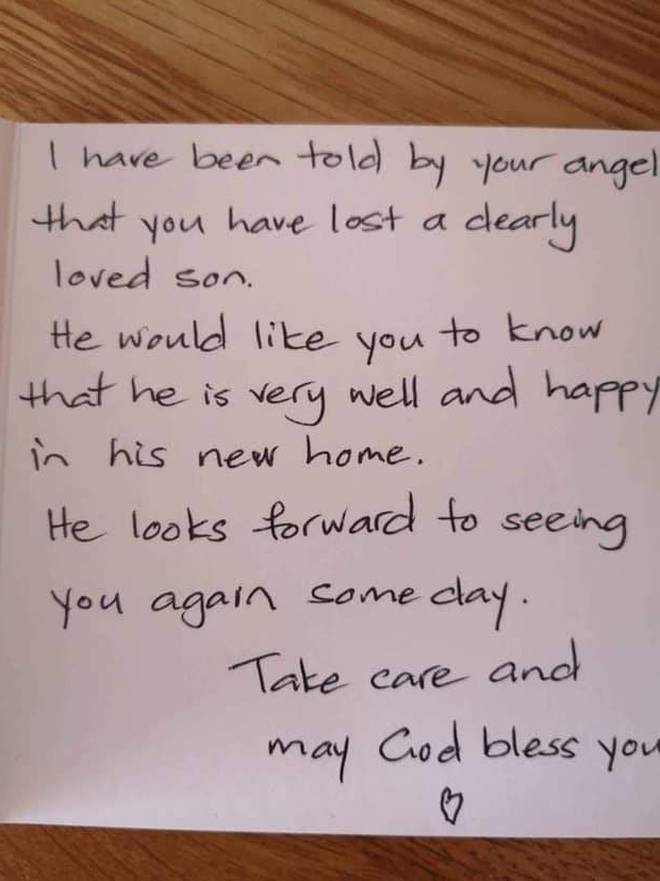 I have been told by your angel
that you have lost a dearly
loved son.
He would like you to know
that he is very well and happy
in his new home.
He looks forward to seeing
you again someday.
Take care and
may God bless you